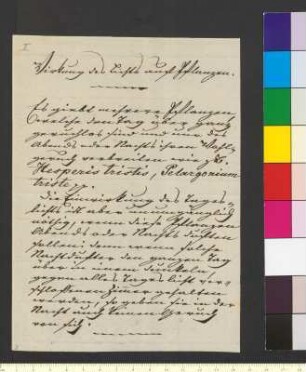 I
Wirkung des Lichts auf Pflanzen.
Es giebt mehrere Pflanzen
welche den Tag über ganz
geruchlos sind und nur des
Abends oder Nachts ihren Wohl-
geruch verbreiten wie z.B.
Hesperis tristis, Pelargonium
triste,
die Einwirkung des Tages-
lichts ist aber unumgänglich
nöthig, wenn diese Pflanzen
Abends oder Nachts duften
sollen; denn wenn solche
Nachtdufter den ganzen Tag
über in einem dunkeln,
gegen alles Tageslicht ver-
schlossenen Zimer gehalten
werden, so geben sie in der
Nacht auch keinen Geruch
von sich.